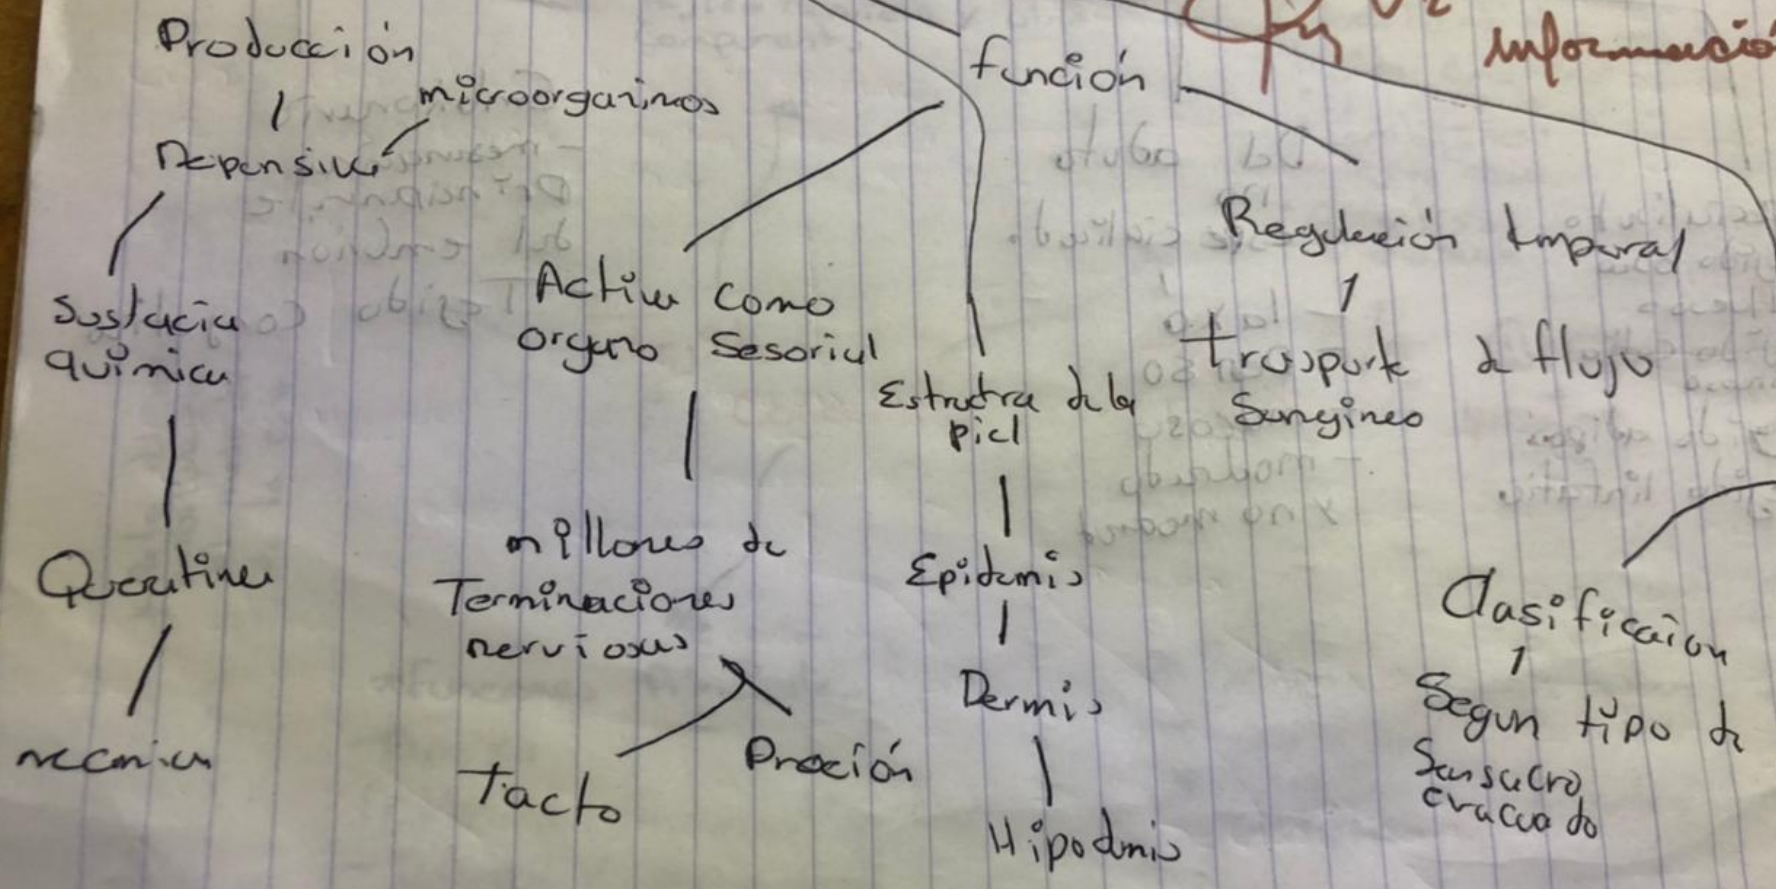 Producción
microorganimos
Depensiva
Sustacia
química
Queratina
mecanica
función
Activa como
organo Sesorial
millones de
Terminaciones
nerviosas
Tacto
Preción
Estrutra de la
piel
Epidemis
Dermis
Hipodmis
Regulación tmporal
trasporte d flujo
Sangineo
Clasificaion
Segun tipo de
evacuado
informació